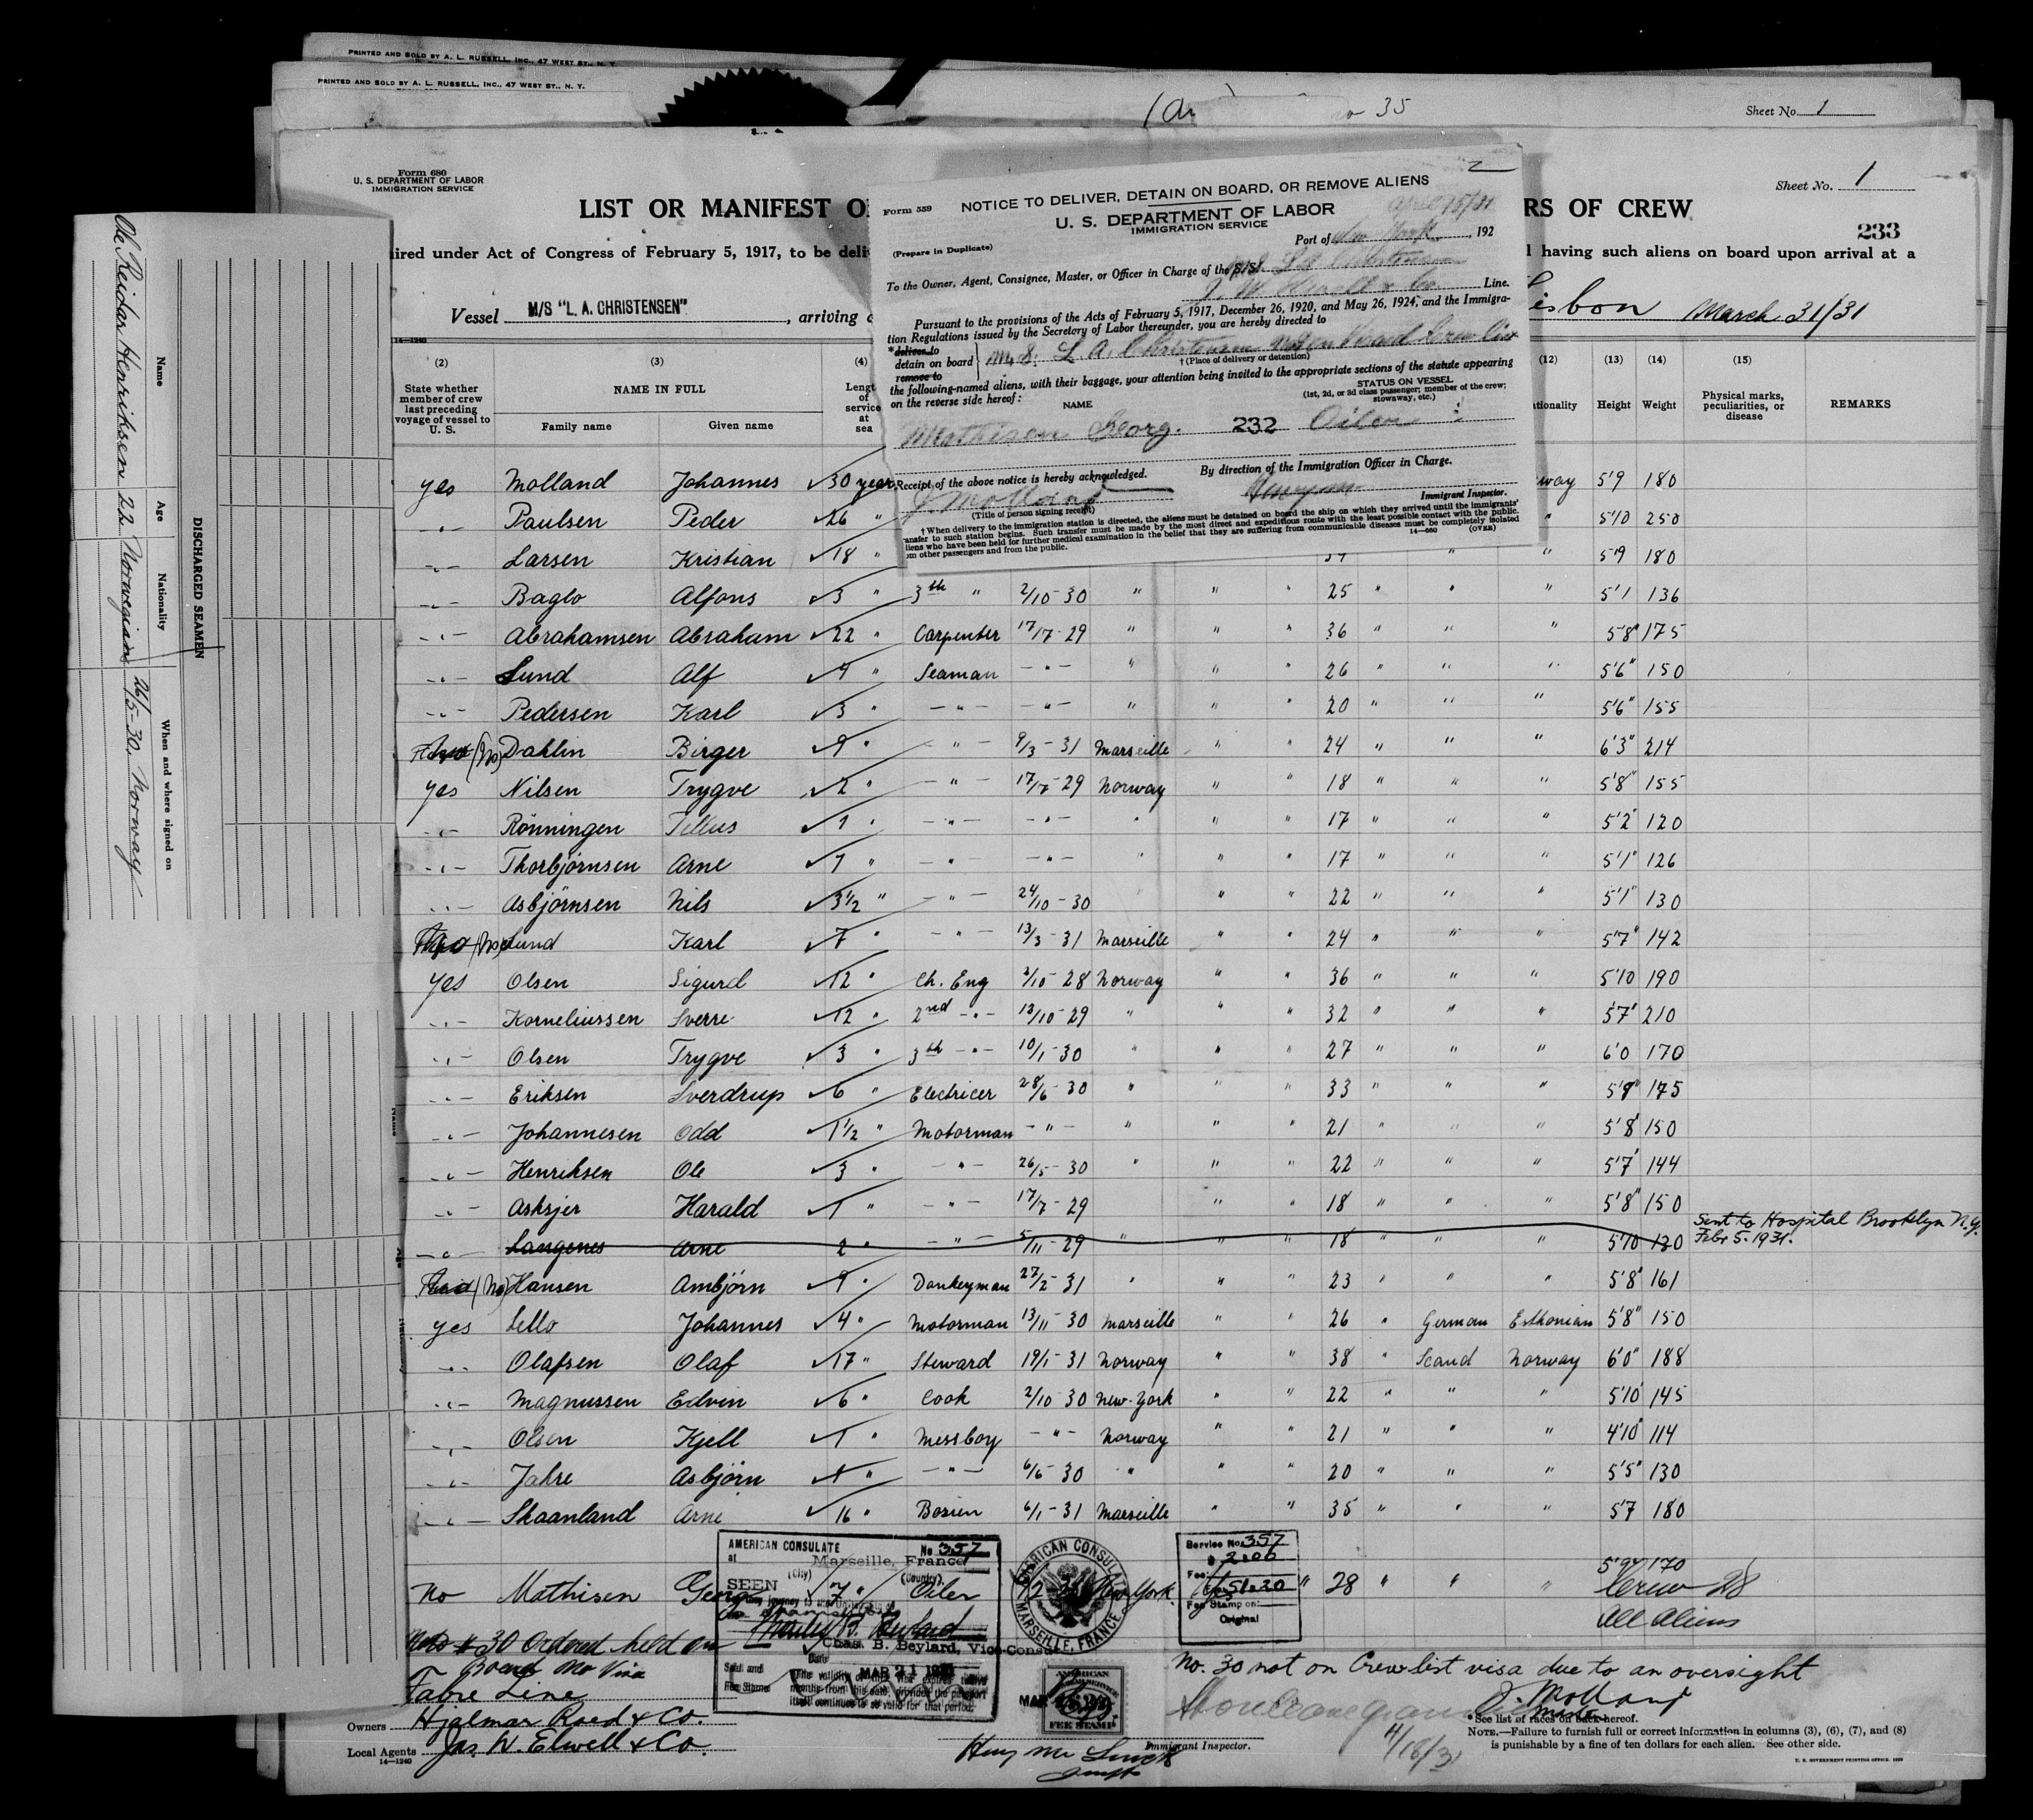 PRINTED AND SOLD BY A. L. RUSSELL, INC., 47 WEST ST., N. Y.
PRINTED AND SOLD BY A. L. RUSSELL, INC., 47 WEST ST., N. Y.
35
Sheet No. 1
Form 680
U. S. DEPARTMENT OF LABOR
IMMIGRATION SERVICE
Sheet No. 1
LIST OR MANIFEST O
RS OF CREW
233
ired under Act of Congress of February 5, 1917, to be deli
l having such aliens on board upon arrival at a
Vessel M/S "L. A. CHRISTENSEN", arriving
isbon March 31/31
14-1240
Form 559
NOTICE TO DELIVER, DETAIN ON BOARD, OR REMOVE ALIENS
U. S. DEPARTMENT OF LABOR
IMMIGRATION SERVICE
April 15/31
(Prepare in Duplicate)
Port of New York, 192
To the Owner, Agent, Consignee, Master, or Officer in Charge of the M/S. L A Christensen
J. W. Elwell & Co Line.
Pursuant to the provisions of the Acts of February 5, 1917, December 26, 1920, and May 26, 1924, and the Immigra-
tion Regulations issued by the Secretary of Labor thereunder, you are hereby directed to
*deliver to
detain on board
remove to
M/S. L A. Christensen not on visaed crew list
† (Place of delivery or detention)
the following-named aliens, with their baggage, your attention being invited to the appropriate sections of the statute appearing
on the reverse side hereof:
NAME
STATUS ON VESSEL
(1st, 2d, or 3d class passenger; member of the crew;
stowaway, etc.)
Mathisen Georg. 232 Oiler
Receipt of the above notice is hereby acknowledged.
By direction of the Immigration Officer in Charge.
J. Molland
(Title of person signing receipt)
Immigrant Inspector.
† When delivery to the immigration station is directed, the aliens must be detained on board the ship on which they arrived until the immigrants'
ansfer to such station begins. Such transfer must be made by the most direct and expeditious route with the least possible contact with the public.
liens who have been held for further medical examination in the belief that they are suffering from communicable diseases must be completely isolated
om other passengers and from the public.
14-660
(OVER)
(2) (3) (4) (12) (13) (14) (15)
State whether
member of crew
last preceding
voyage of vessel to
U. S.
NAME IN FULL
Family name Given name
Lengt
of
service
at
sea
tionality Height Weight
Physical marks,
peculiarities, or
disease
REMARKS
yes Molland Johannes 30 years way 5'9 180
-"- Paulsen Peder 26 " " 5'10 250
-"- Larsen Kristian 18 " " " 5'9 180
-"- Baglo Alfons 3 " 3th " 2/10-30 " " " 25 " " " 5'1 136
-"- Abrahamsen Abraham 22 " Carpenter 17/7-29 " " " 36 " " " 5'8" 175
-"- Lund Alf 4 " Seaman -"- " " " 26 " " " 5'6" 150
-"- Pedersen Karl 3 " -"- -"- " " " 20 " " " 5'6" 155
(No) Dahlin Birger 9 " -"- 9/3-31 Marseille " " 24 " " " 6'3" 214
yes Nilsen Trygve 2 " -"- 17/7-29 Norway " " 18 " " " 5'8" 155
-"- Rönningen Tellus 1 " -"- -"- " " 17 " " " 5'2" 120
-"- Thorbjörnsen Arne 1 " -"- -"- " " " 17 " " " 5'1" 126
-"- Asbjörnsen Nils 3½ " -"- 24/10-30 " " " 22 " " " 5'1" 130
(No) Lund Karl 7 " -"- 13/3-31 Marseille " " 24 " " " 5'7" 142
yes Olsen Sigurd 12 " Ch. Eng 2/10 28 Norway " " 36 " " " 5'10 190
-"- Korneliussen Sverre 12 " 2nd -"- 13/10-29 " " 32 " " " 5'7" 210
-"- Olsen Trygve 3 " 3th -"- 10/1-30 " " " 27 " " " 6'0 170
-"- Eriksen Sverdrup 6 " Electricer 28/6-30 " " " 33 " " " 5'9" 175
-"- Johannesen Odd 1½ " Motorman -"- " " " 21 " " " 5'8 150
-"- Henriksen Ole 3 " -"- 26/5-30 " " " 22 " " " 5'7 144
-"- Asksjer Harald 1 " -"- 17/7-29 " " 18 " " " 5'8" 150
-"- Langenes Arne 2 " -"- 5/11-29 " " " 18 " " " 5'10 130 Sent to Hospital Brooklyn N.Y.
Febr 5. 1931.
(No) Hansen Ambjörn 9 " Donkeyman 27/2-31 " " " 23 " " " 5'8" 161
yes Lello Johannes 4 " Motorman 13/11-30 Marseille " " 26 " German Esthonian 5'8" 150
-"- Olafsen Olaf 17 " Steward 19/1-31 Norway " " 38 " Scand Norway 6'0" 188
-"- Magnussen Edvin 6 " Cook 2/10 30 New-York " " 22 " " " 5'10 145
-"- Olsen Kjell 1 " Messboy -"- Norway " " 21 " " " 4'10" 114
-"- Jahre Asbjörn 1 " -"- 6/5-30 " " " 20 " " " 5'5" 130
-"- Skaanland Arne 16 " Bosun 6/1-31 Marseille " " 35 " " " 5'7 180
No Mathisen Georg 7 " Oiler New York " 28 " " " 5'9½ 170
Crew 28
All Aliens
AMERICAN CONSULATE No 357
at Marseille, France
(City) (Country)
SEEN
Chas. B. Beylard, Vice-Consul
Date MAR 21 1931
AMERICAN CONSULATE
MARSEILLE, FRANCE
Service No. 357
Fee:
51.30
Fee Stamp on:
Original
AMERICAN
FEE STAMP
No # 30 Ordered held on
Board No Visa
Fabre Line
No. 30 not on Crew list visa due to an oversight
J. Molland
Master
Owners Hjalmar Roed & Co.
Local Agents Jas W. Elwell & Co.
14-1240
Immigrant Inspector.
4/18/31
* See list of races on back hereof.
NOTE.—Failure to furnish full or correct information in columns (3), (6), (7), and (8)
is punishable by a fine of ten dollars for each alien. See other side.
U. S. GOVERNMENT PRINTING OFFICE: 1929
DISCHARGED SEAMEN
Name Age Nationality When and where signed on
Ole Reidar Henriksen 22 Norwegian 26/5-30. Norway